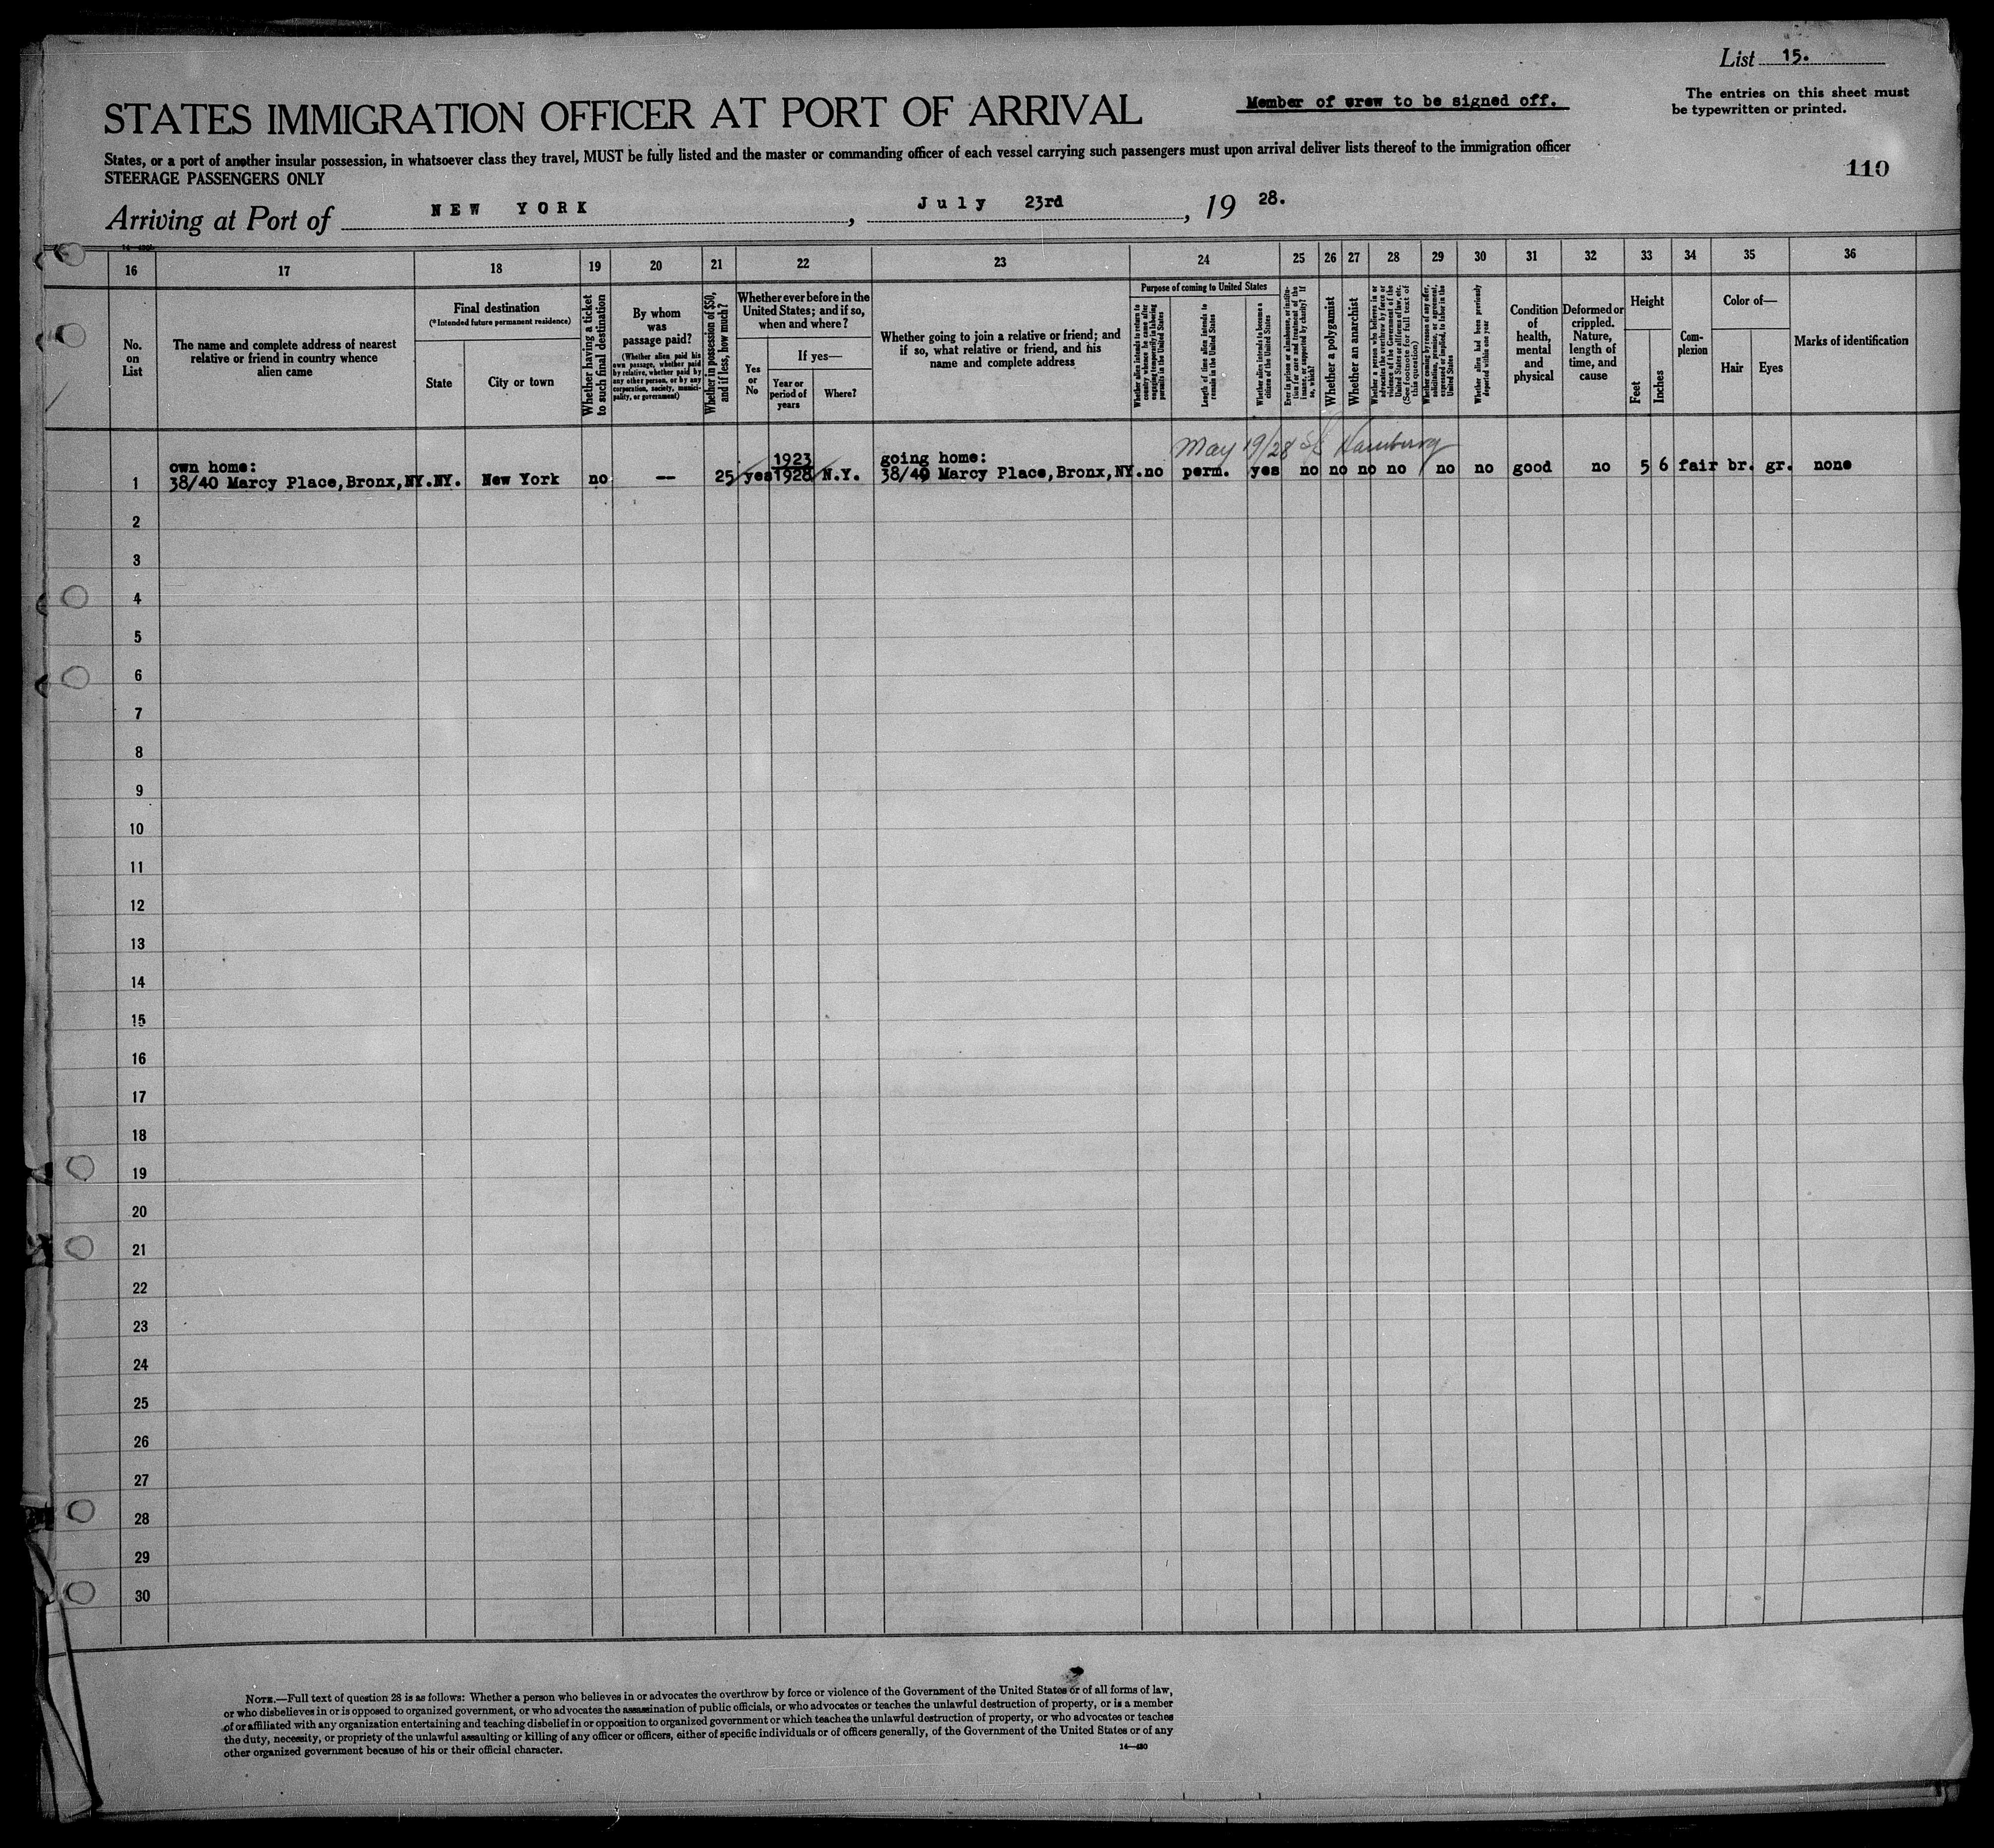 List 15.
The entries on this sheet must
be typewritten or printed.
STATES IMMIGRATION OFFICER AT PORT OF ARRIVAL
Member of crew to be signed off.
States, or a port of another insular possession, in whatsoever class they travel, MUST be fully listed and the master or commanding officer of each vessel carrying such passengers must upon arrival deliver lists thereof to the immigration officer
STEERAGE PASSENGERS ONLY
110
Arriving at Port of NEW YORK, July 23rd, 1928.
16 17 18 19 20 21 22 23 24 25 26 27 28 29 30 31 32 33 34 35 36
No.
on
List
The name and complete address of nearest
relative or friend in country whence
alien came
Final destination
(*Intended future permanent residence)
State
City or town
Whether having a ticket
to such final destination
By whom
was
passage paid?
(Whether alien paid his
own passage, whether paid
by relative, whether paid by
any other person, or by any
corporation, society, munici-
pality, or government)
Whether in possession of $50,
and if less, how much?
Whether ever before in the
United States; and if so,
when and where?
Yes
or
No
If yes—
Year or
period of
years
Where?
Whether going to join a relative or friend; and
if so, what relative or friend, and his
name and complete address
Purpose of coming to United States
Whether alien intends to return to
country whence he came after
engaging temporarily in laboring
pursuits in the United States
Length of time alien intends to
remain in the United States
Whether alien intends to become a
citizen of the United States
Ever in prison or almshouse, or institu-
tion for care and treatment of the
insane, or supported by charity? If
so, which?
Whether a polygamist
Whether an anarchist
Whether a person who believes in or
advocates the overthrow by force or
violence of the Government of the
United States or all forms of law, etc.
(See footnote for full text of
this question)
Whether coming by reason of any offer,
solicitation, promise, or agreement,
expressed or implied, to labor in the
United States
Whether alien had been previously
deported within one year
Condition
of
health,
mental
and
physical
Deformed or
crippled.
Nature,
length of
time, and
cause
Height
Feet
Inches
Com-
plexion
Color of—
Hair
Eyes
Marks of identification
May 19/28 S/S Hamburg
own home: 1923 going home:
1 38/40 Marcy Place,Bronx,NY. NY. New York no -- 25 yes 1928 N.Y. 38/40 Marcy Place,Bronx,NY. no perm. yes no no no no no no good no 5 6 fair br. gr. none
2
3
4
5
6
7
8
9
10
11
12
13
14
15
16
17
18
19
20
21
22
23
24
25
26
27
28
29
30
NOTE.—Full text of question 28 is as follows: Whether a person who believes in or advocates the overthrow by force or violence of the Government of the United States or of all forms of law,
or who disbelieves in or is opposed to organized government, or who advocates the assassination of public officials, or who advocates or teaches the unlawful destruction of property, or is a member
of or affiliated with any organization entertaining and teaching disbelief in or opposition to organized government or which teaches the unlawful destruction of property, or who advocates or teaches
the duty, necessity, or propriety of the unlawful assaulting or killing of any officer or officers, either of specific individuals or of officers generally, of the Government of the United States or of any
other organized government because of his or their official character.
14—480